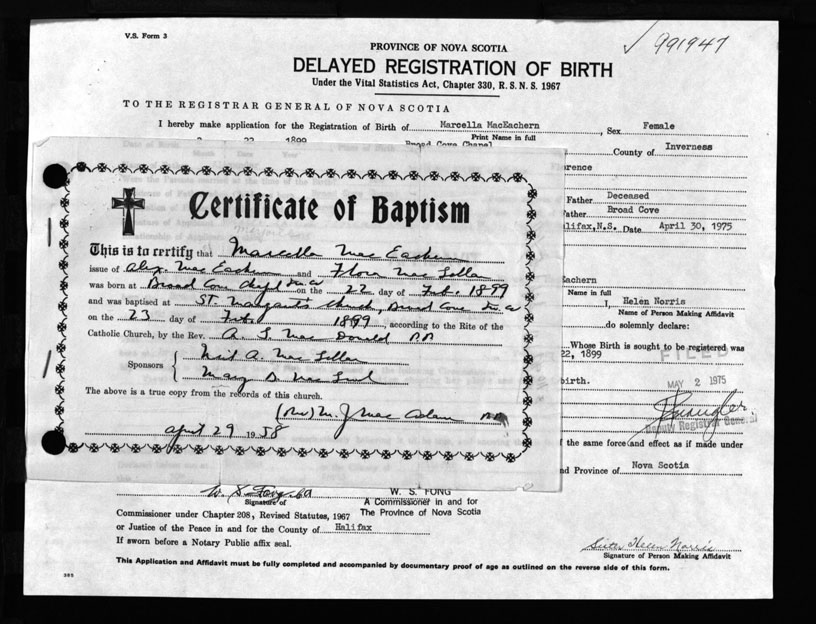 V.S. Form 3
✓ 991947
PROVINCE OF NOVA SCOTIA
DELAYED REGISTRATION OF BIRTH
Under the Vital Statistics Act, Chapter 330, R.S.N.S. 1967
TO THE REGISTRAR GENERAL OF NOVA SCOTIA
I hereby make application for the Registration of Birth of Marcella MacEachern, Sex Female
Print Name in full
22 1899 Broad Cove Chapel County of Inverness
Florence
Certificate of Baptism
Father Deceased
Father Broad Cove
Halifax, N.S. Date April 30, 1975
This is to certify that Marcella MacEachern
issue of Alex. MacEachern and Flora MacLellan
was born at Broad Cove Chapel on the 22 day of Feb. 1899
and was baptised at St. Margaret's Church, Broad Cove
on the 23 day of Feb. 1899, according to the Rite of the
Catholic Church, by the Rev. A. L. MacDonald P.P.
Sponsors Neil A. MacLellan
Mary
The above is a true copy from the records of this church.
(Rev) M. J. MacAdam P.P.
April 29 1958
Eachern
Name in full
I, Helen Norris
Name of Person Making Affidavit
do solemnly declare:
Whose Birth is sought to be registered was
22, 1899
FILED
birth.
MAY 2 1975
Deputy Registrar General
the same force and effect as if made under
and Province of Nova Scotia
W. S. Fong
W. S. FONG
Signature of
A Commissioner in and for
Commissioner under Chapter 208, Revised Statutes, 1967 The Province of Nova Scotia
or Justice of the Peace in and for the County of Halifax
If sworn before a Notary Public affix seal.
Sister Helen Norris
Signature of Person Making Affidavit
This Application and Affidavit must be fully completed and accompanied by documentary proof of age as outlined on the reverse side of this form.